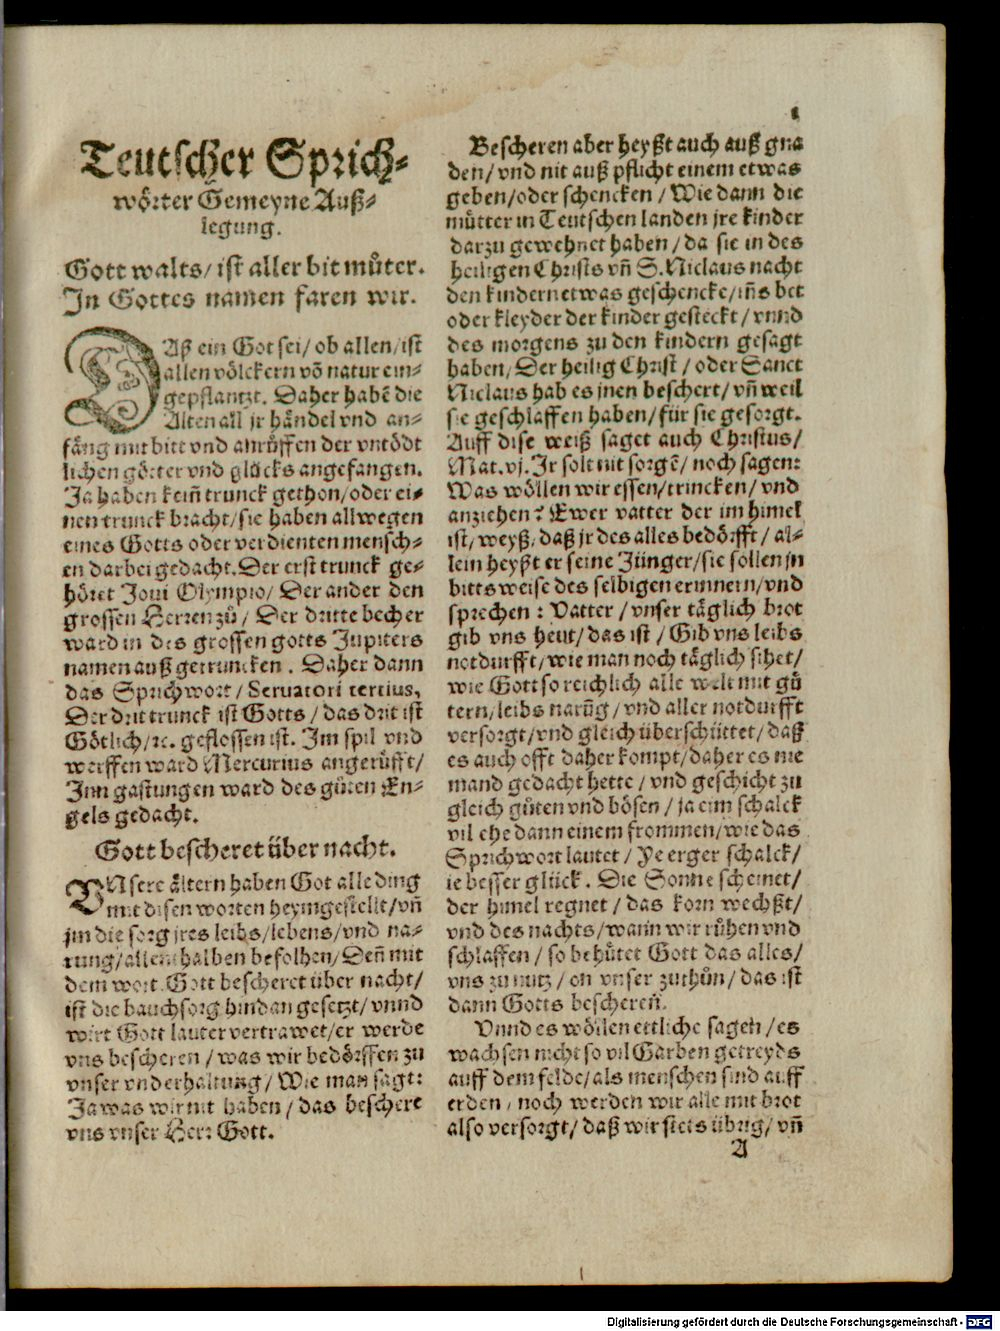 1
Teutscher Sprich-
wörter Gemeyne Auß-
legung.
Gott walts/ ist aller bit můter.
In Gottes namen faren wir.
DAß ein Got sei/ ob allen/ist
allen völckern võ natur ein-
gepflantzt. Daher habẽ die
Alten all jr händel vnd an-
fäng mit bitt vnd anrůffen der vntödt
lichen götter vnd glücks angefangen.
Ja haben keiñ trunck gethon/oder ei-
nen trunck bracht/sie haben allwegen
eines Gotts oder verdienten mensch-
en darbei gedacht. Der erst trunck ge-
höret Joui Olympio/ Der ander den
grossen Herren zů/ Der dritte becher
ward in des grossen gotts Jupiters
namen auß getruncken. Daher dann
das Sprichwort/ Seruatori tertius,
Der drit trunck ist Gotts/ das drit ist
Götlich/ꝛc. geflossen ist. Im spil vnd
werffen ward Mercurius angerůfft/
Inn gastungen ward des gůten En-
gels gedacht.
Gott bescheret über nacht.
VNsere ältern haben Got alle ding
mit disen worten heymgestellt/vñ
jm die sorg jres leibs/lebens/vnd na-
rung/allenthalben befolhen/Deñ mit
dem wort Gott bescheret über nacht/
ist die bauchsorg hindan gesetzt/vnnd
wirt Gott lauter vertrawet/er werde
vns bescheren/was wir bedörffen zu
vnser vnderhaltung/ Wie man sagt:
Ja was wir nit haben/das beschere
vns vnser Herr Gott.
Bescheren aber heyßt auch auß gna
den/vnd nit auß pflicht einem etwas
geben/oder schencken/ Wie dann die
můtter in Teutschen landen jre kinder
darzu gewehnet haben/da sie in des
heiligen Christs vñ S. Niclaus nacht
den kindern etwas geschencke/iñs bet
oder kleyder der kinder gesteckt/ vnnd
des morgens zu den kindern gesagt
haben/Der heilig Christ/oder Sanct
Niclaus hab es jnen beschert/vñ weil
sie geschlaffen haben/für sie gesorgt.
Auff dise weiß saget auch Christus/
Mat.vj. Ir solt nit sorgẽ/noch sagen:
Was wöllen wir essen/trincken/vnd
anziehen? Ewer vatter der im himel
ist/weyß/daß jr des alles bedörfft/al-
lein heyßt er seine Jünger/sie sollen jn
bittsweise des selbigen erinnern/vnd
sprechen: Vatter/vnser täglich brot
gib vns heut/das ist/Gib vns leibs
notdurfft/wie man noch täglich sihet/
wie Gott so reichlich alle welt mit gů
tern/leibs narũg/vnd aller notdurfft
versorgt/vnd gleich überschüttet/daß
es auch offt daher kompt/daher es nie
mand gedacht hette/vnd geschicht zu
gleich gůten vnd bösen/ja eim schalck
vil ehe dann einem frommen/wie das
Sprichwort lautet/Ye erger schalck/
ie besser glück. Die Sonne scheinet/
der himel regnet/das korn wechßt/
vnd des nachts/wann wir růhen vnd
schlaffen/so behůtet Gott das alles/
vns zu nutz/on vnser zuthůn/das ist
dann Gotts bescheren.
Vnnd es wöllen ettliche sagen/es
wachsen nicht so vil Garben getreyds
auff dem felde/als menschen sind auff
erden/noch werden wir alle mit brot
also versorgt/daß wir stets übrig/vñ
A
Digitalisierung gefördert durch die Deutsche Forschungsgemeinschaft - DFG